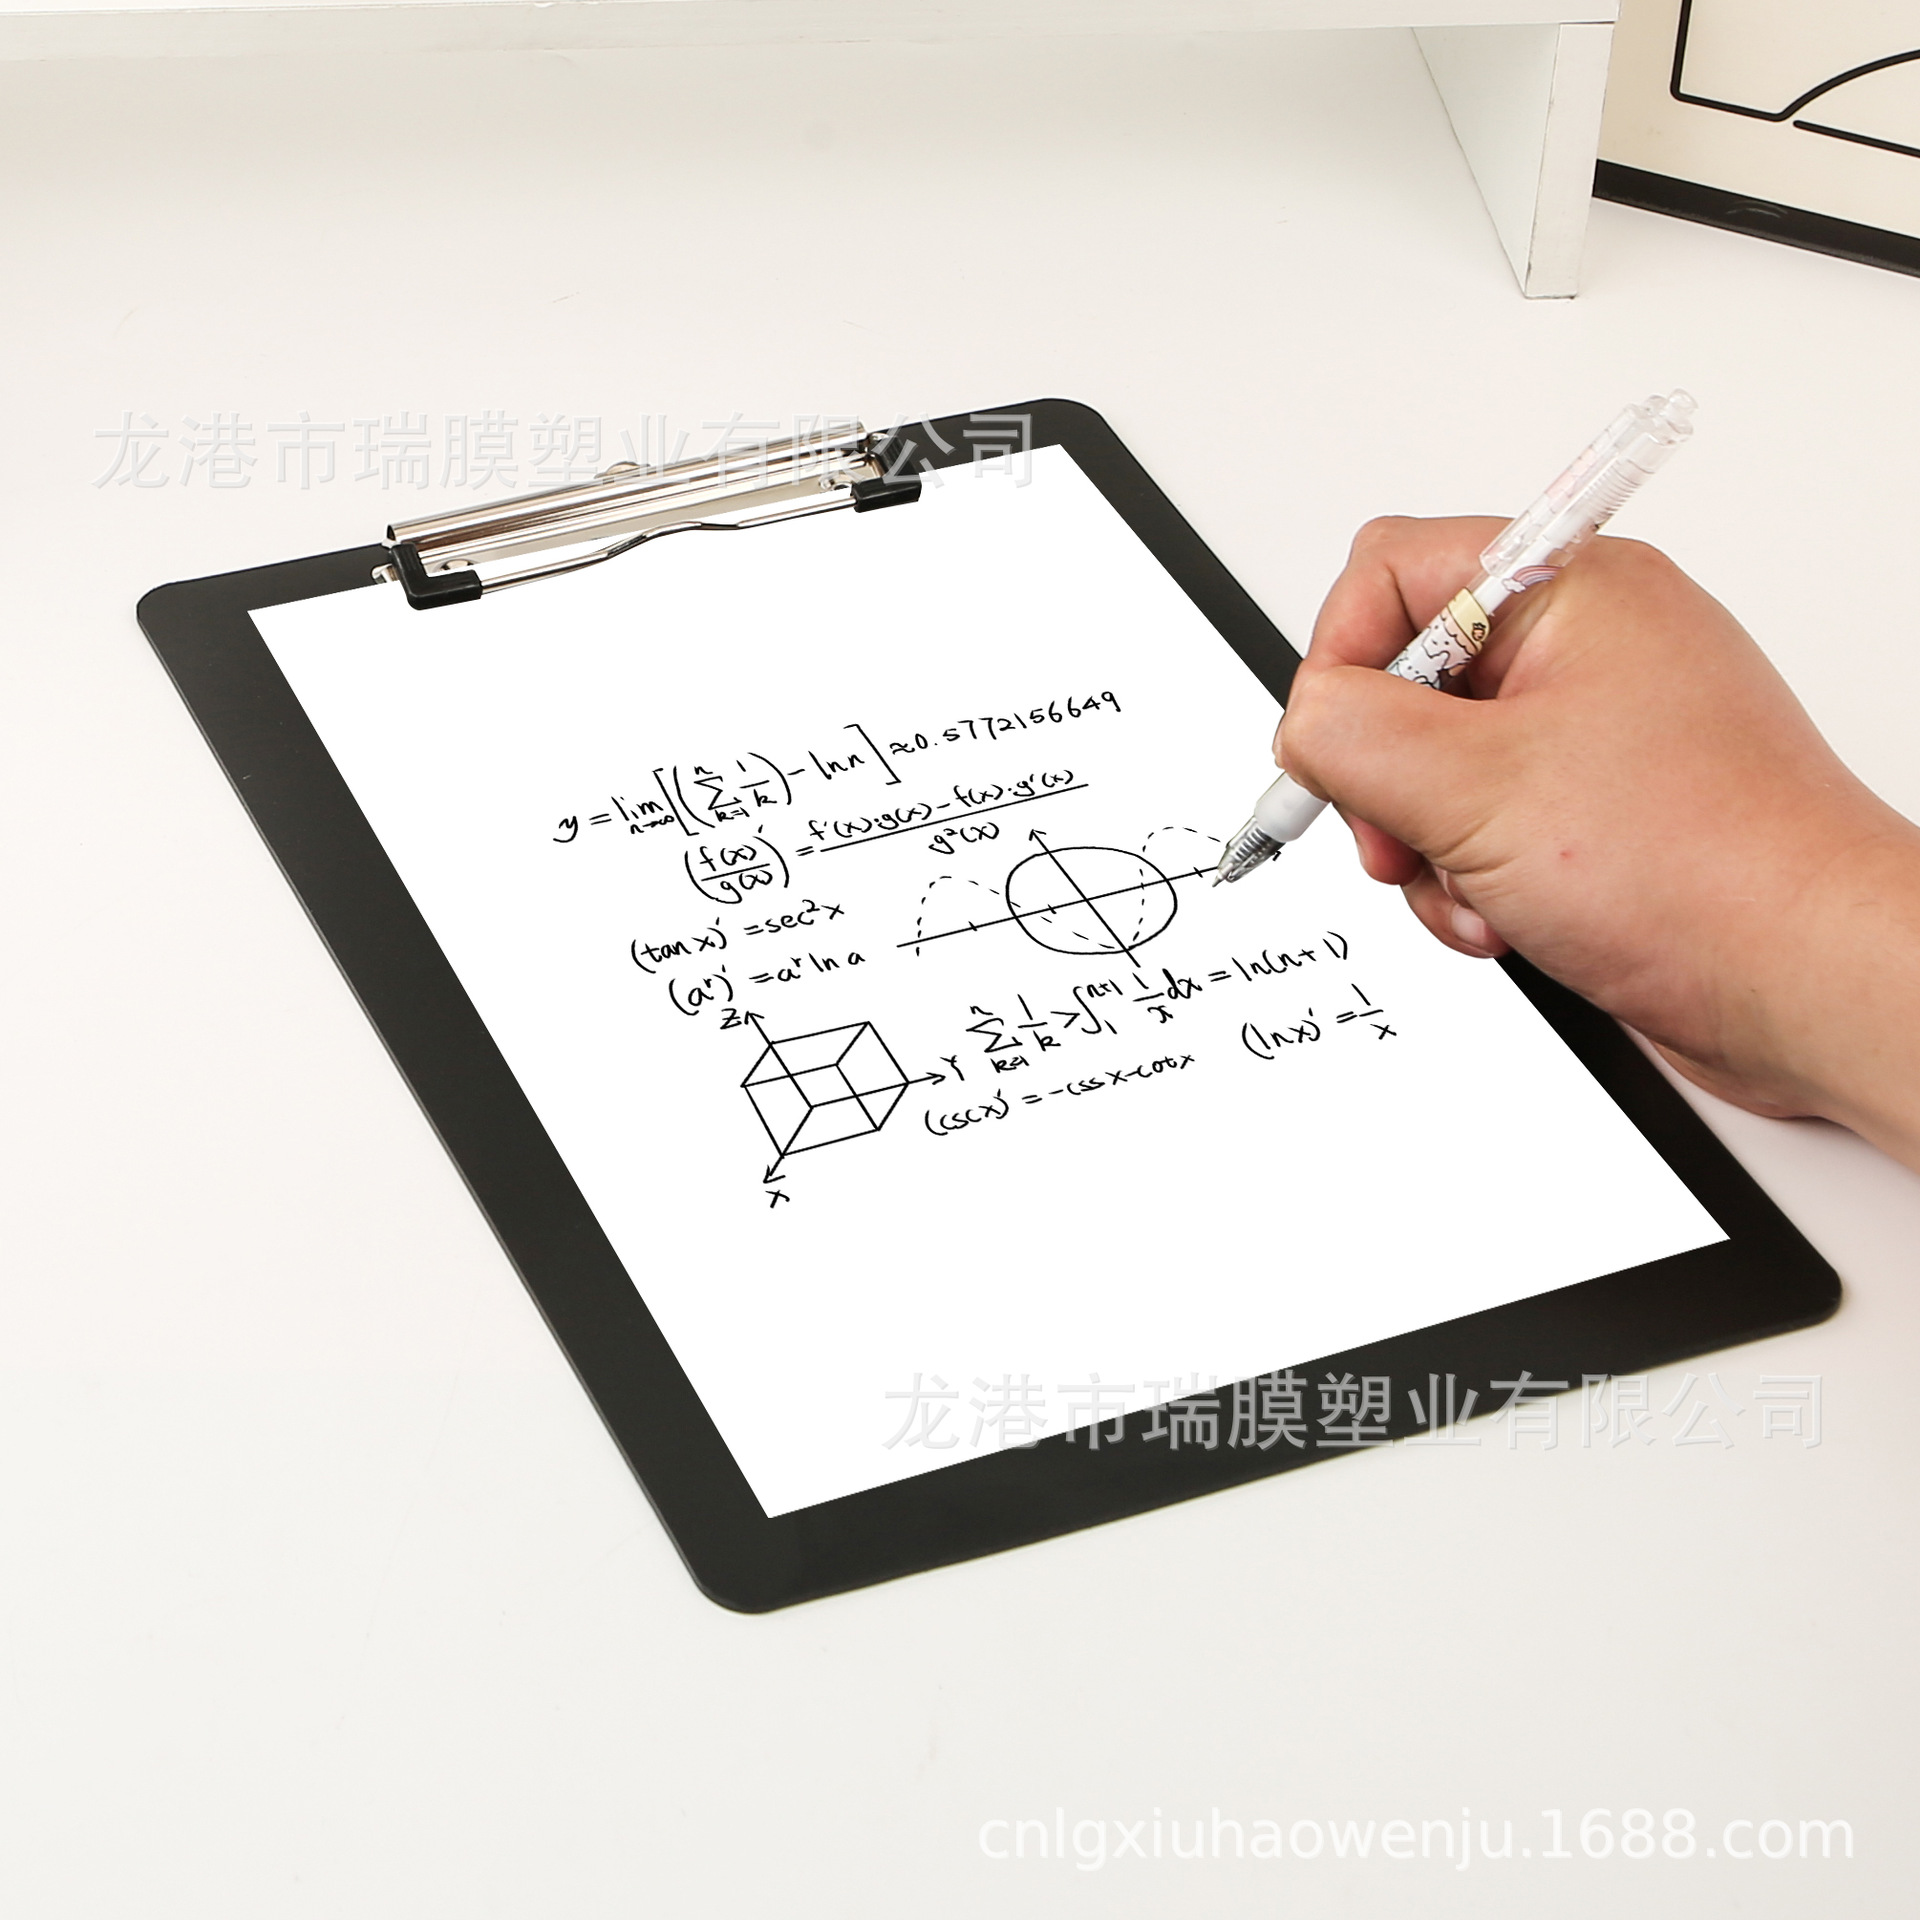 龙港市瑞膜塑业有限公司
y = lim n→∞ [(∑ n k=1 1/k) - ln n] ≈ 0.5772156649
(f(x)/g(x))′ = f′(x)·g(x) - f(x)·g′(x) / g²(x)
(tan x)′ = sec²x
(aʳ)′ = aʳ ln a
Z
∑ n k=1 1/k > ∫ n+1 1 1/x dx = ln(n+1)
Y
(ln x)′ = 1/x
(cscx)′ = -cssx-cotx
X
龙港市瑞膜塑业有限公司
cnlgxiuhaowenju.1688.com